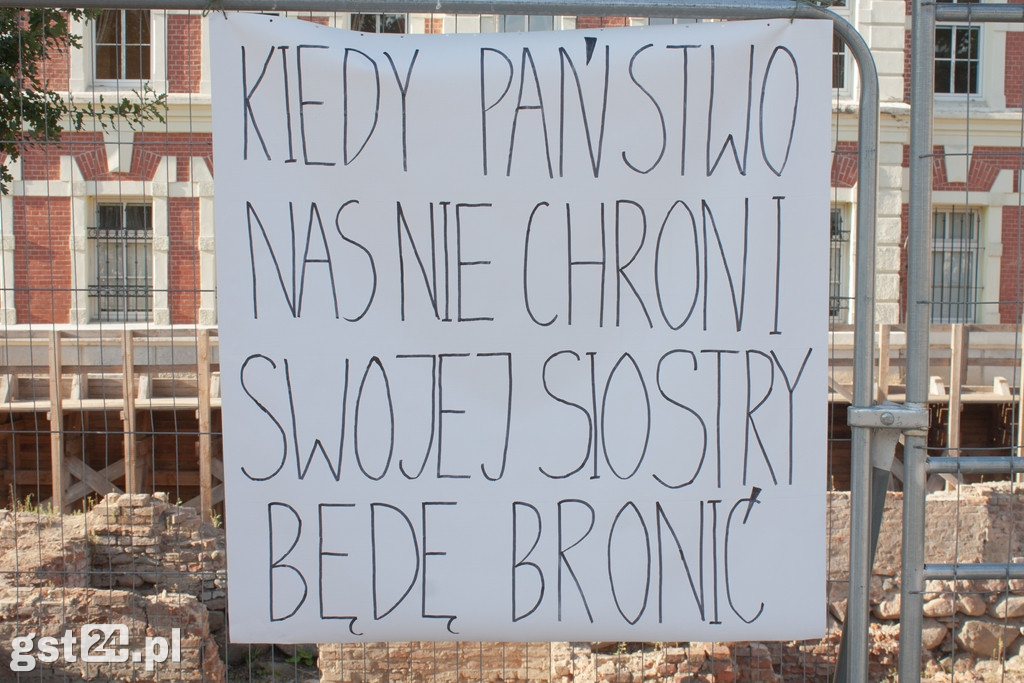 KIEDY PAŃSTWO
NAS NIE CHRONI
SWOJEJ SIOSTRY
BĘDĘ BRONIĆ
gst24.pl